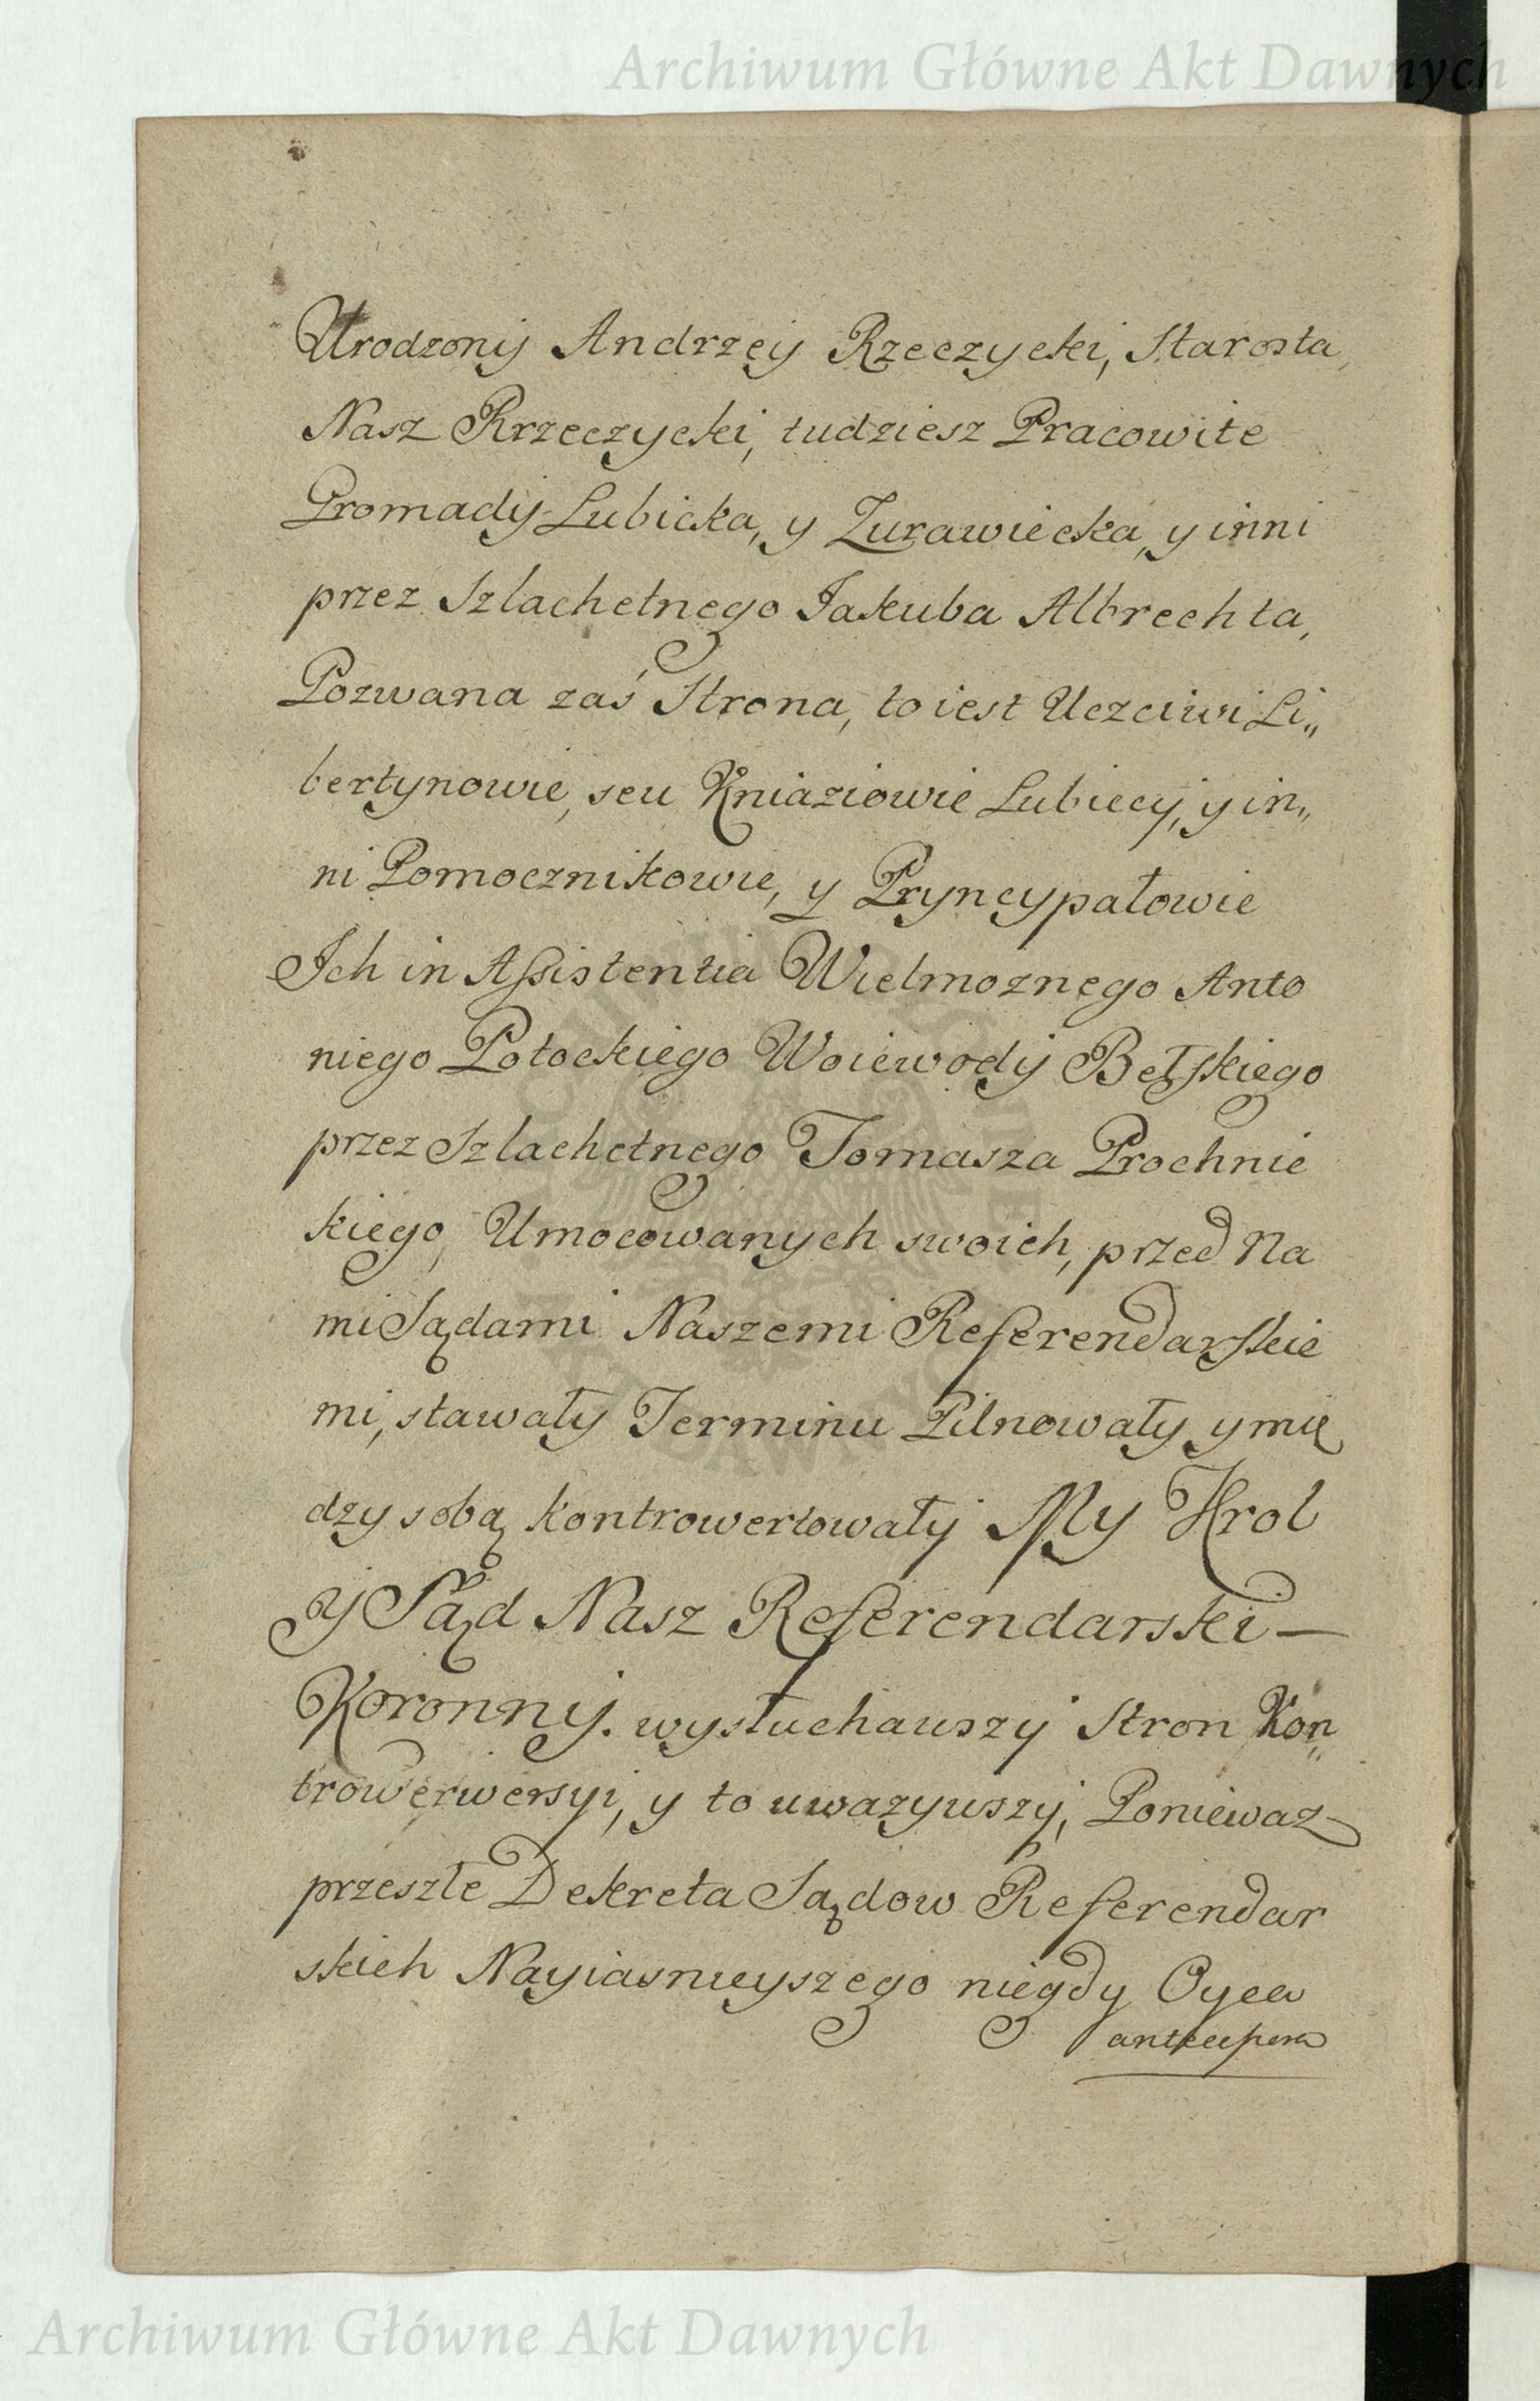 Archiwum Główne Akt Dawnych
Urodzony Andrzey Rzeczycki, Starosta
Nasz Rrzeczycki, tudziesz Pracowite
Gromady Lubicka, y Zurawiecka, y inni
przez Szlachetnego Jakuba Albrechta,
Pozwana zaś Strona, to iest Uczciwi Li„
bertynowie, seu Kniaziowie Lubiecy, y in„
ni Pomocznikowie, y Pryncypałowie
Ich in Assistentia Wielmoznego Anto
niego Potockiego Woiewody Bełskiego
przez Szlachetnego Tomasza Prochnic
kiego, Umocowanych swoich, przed Na
mi Sądami Naszemi Referendarskie
mi, stawały Terminu Pilnowały y mię
dzy sobą kontrowertowały My Krol
y Sąd Nasz Referendarski —
Koronny. wysłuchawszy Stron Kon„
trowerwersyi, y to uwazywszy, Poniewaz
przeszłe Dekreta Sądow Referendar
skich Nayiasnieyszego niegdy Oyca
Archiwum Główne Akt Dawnych